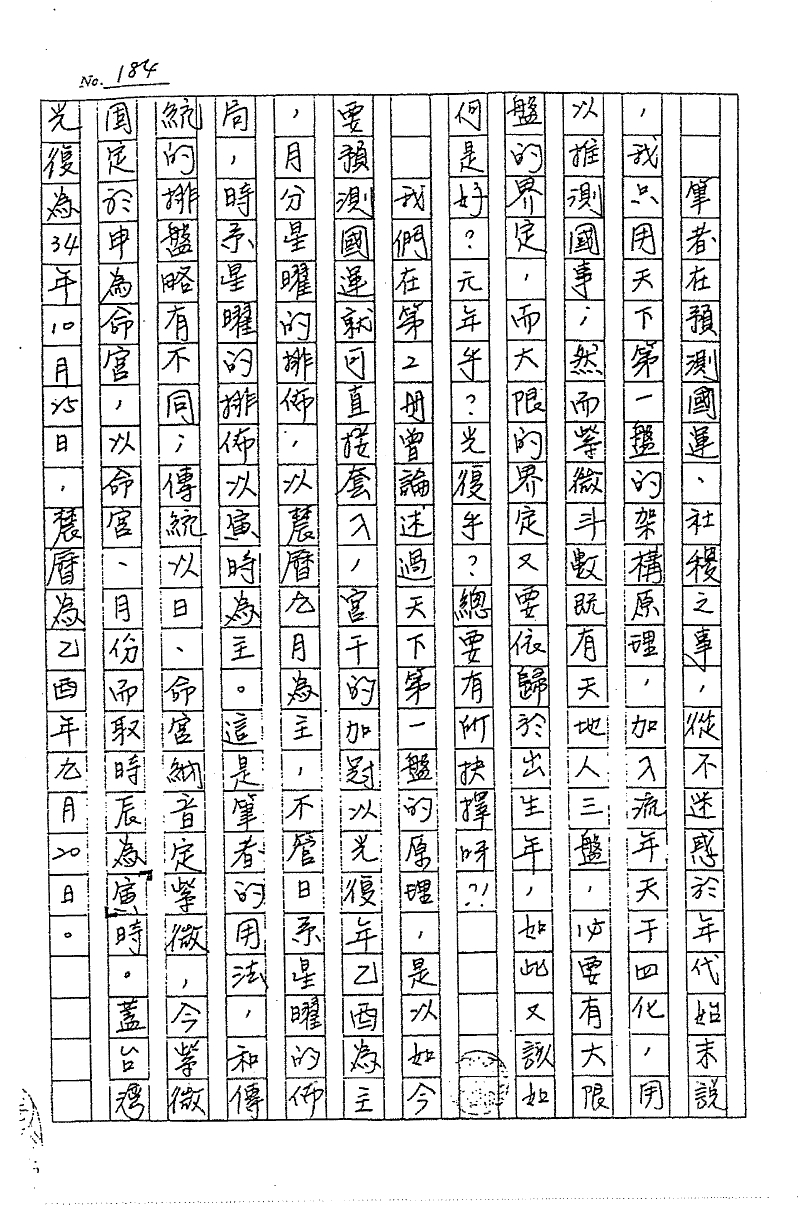 No. 184
筆者在預測國運、社稷之事,從不迷惑於年代始末說
,我只用天下第一盤的架構原理,加入流年天干四化,用
以推測國事;然而紫微斗數既有天地人三盤,必要有大限
盤的界定,而大限的界定又要依歸於出生年,如此又該如
何是好?元年乎?光復乎?總要有所抉擇呀?!
我們在第2冊曾論述過天下第一盤的原理,是以如今
要預測國運就可直接套入,宮干的加對以光復年乙酉為主
,月分星曜的排佈,以農曆九月為主,不管日系星曜的佈
局,時系星曜的排佈以寅時為主。這是筆者的用法,和傳
統的排盤略有不同;傳統以日、命宮納音定紫微,今紫微
固定於申為命宮,以命宮、月份而取時辰為寅時。蓋台灣
光復為34年10月25日,農曆為乙酉年九月20日。